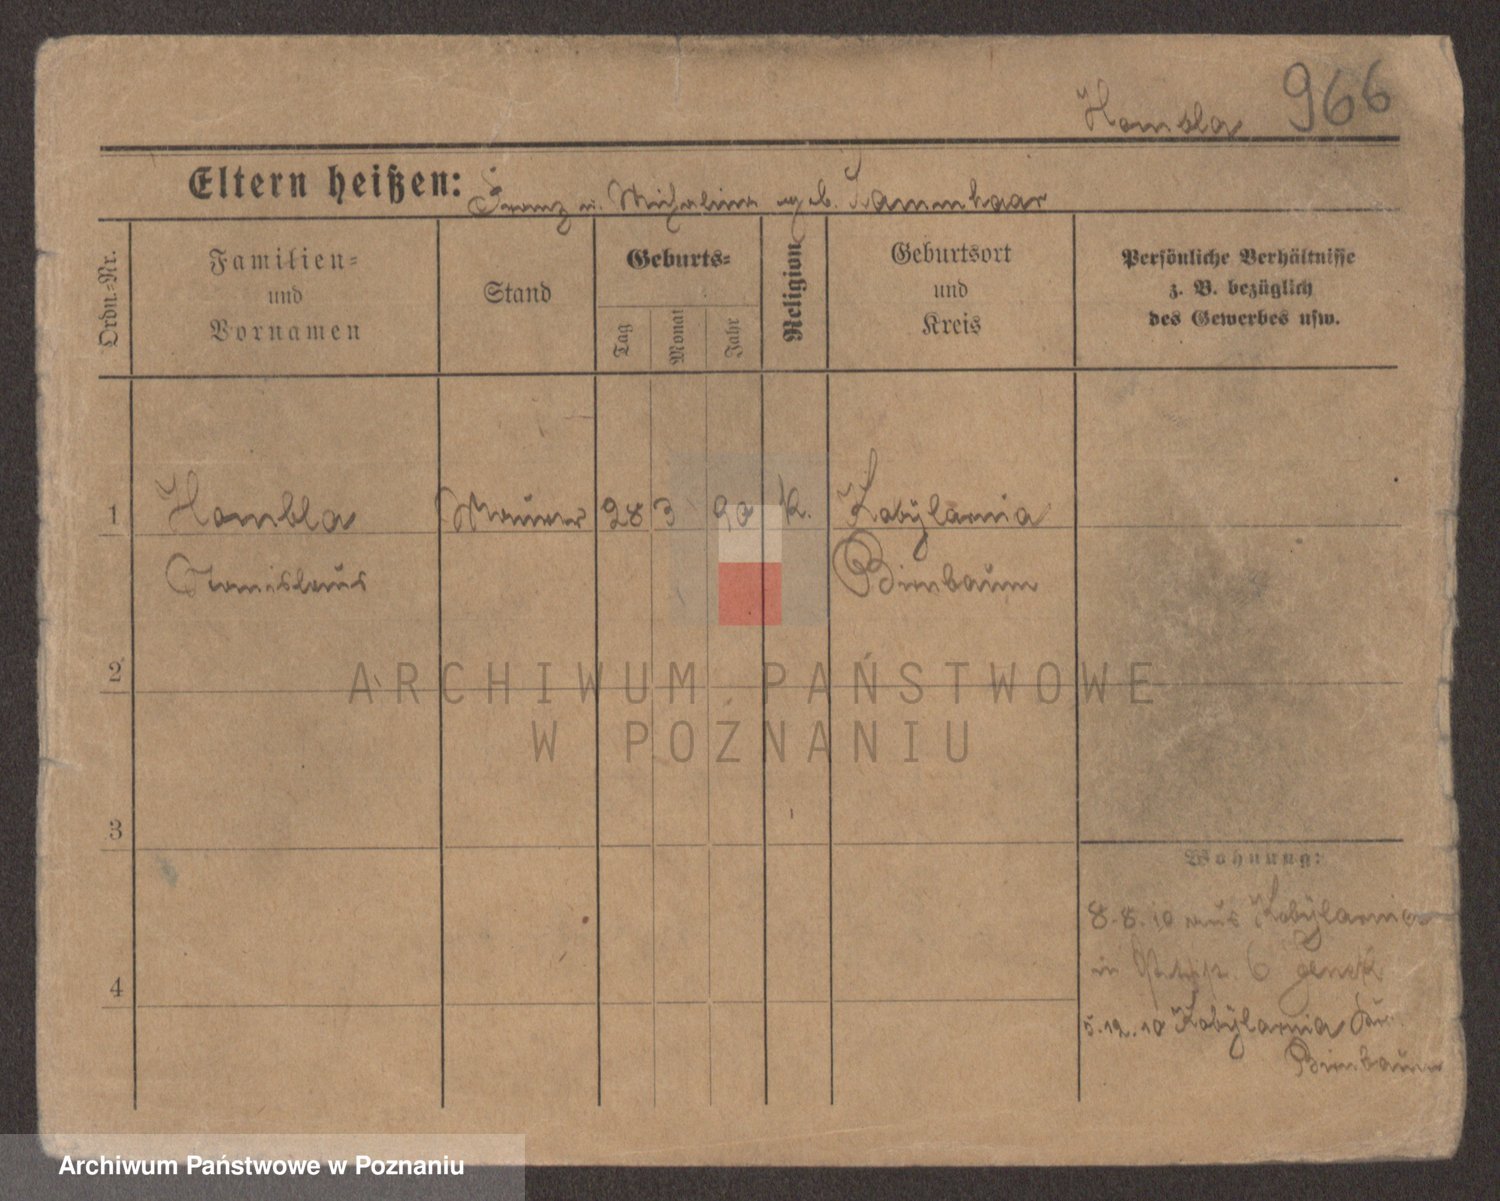 966
Hombla
Eltern heißen: Franz u. Michalina geb. Kammhaar
Ordn.-Nr.
Familien-
und
Vornamen
Stand
Geburts-
Tag
Monat
Jahr
Religion
Geburtsort
und
Kreis
Persönliche Verhältnisse
z. B. bezüglich
des Gewerbes usw.
1 Hombla Maurer 28 3 90 k. Kobylarnia
Stanislaus Birnbaum
2
3
4
Wohnung:
8.8.10 aus Kobylarnia
in 6
5.12.10 Kobylarnia Kr.
Birnbaum
ARCHIWUM PAŃSTWOWE
W POZNANIU
Archiwum Państwowe w Poznaniu